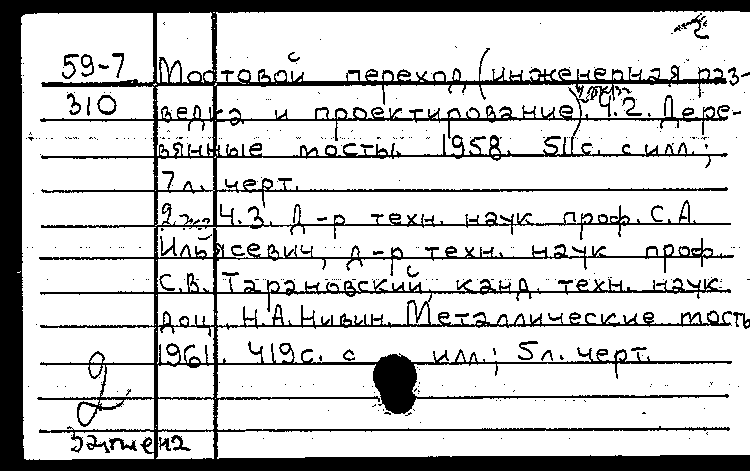 2
59-7 Мостовой переход (инженерная раз-
310 ведка и проектирование). Ч.2. Дере-
вянные мосты. 1958. 511с. с илл.;
7л. черт.
2экз Ч.3. Д-р техн. наук проф. С.А.
Ильясевич, д-р техн. наук проф.
С.В. Тарановский, канд. техн. наук
доц. Н.А. Нивин. Металлические мосты
1961. 419с. с илл.; 5л. черт.
2